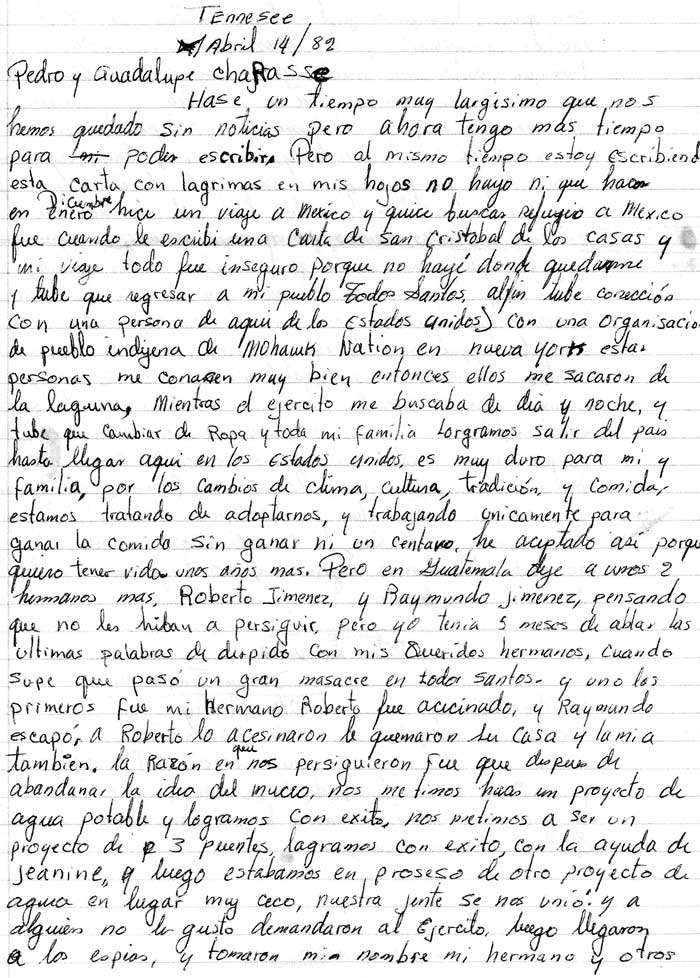 Tennesee
Abril 14/82
Pedro y Guadalupe chaRasse
Hase un tiempo muy largisimo que nos
hemos quedado sin noticias pero ahora tengo mas tiempo
para poder escribir, Pero al mismo tiempo estoy escribiend
esta carta, con lagrimas en mis hojos no hayo ni que hacer
en Diciembre Enero hice un viaje a Mexico y quice buscar refugio a Mexico
fue cuando le escribi una carta de San Cristobal de los casas y
mi viaje todo fue inseguro porque no hayé donde quedarme
y tube que regresar a mi pueblo Todos Santos, alfin tube conección
con una persona de aqui de los Estados unidos) con una organisacio
de pueblo indigena de Mohawk Nation en nueva york estas
personas me conocen muy bien entonces ellos me sacaron de
la laguna, Mientras el ejercito me buscaba de dia y noche, y
tube que cambiar de Ropa y toda mi familia lorgramos salir del pais
hasta llegar aqui en los Estados unidos, es muy duro para mi y
familia, por los cambios de clima, cultura, tradición, y comida,
estamos tratando de adoptarnos, y trabajando unicamente para
ganar la comida sin ganar ni un centavo, he aceptado asi porque
quiero tener vida unos años mas. Pero en Guatemala deje a unos 2
hermanos mas, Roberto Jimenez, y Raymundo Jimenez, pensando
que no les hiban a persiguir, pero yo tenia 5 meses de ablar las
ultimas palabras de despido con mis Queridos hermanos, cuando
supe que pasó un gran masacre en todos santos- y uno los
primeros fue mi Hermano Roberto fue acecinado, y Raymundo
escapó, a Roberto lo acesinaron le quemaron su casa y la mia
tambien. la Razón en que nos persiguieron fue que despues de
abandanar la idea del museo, nos metimos hacer un proyecto de
agua potable y logramos con exito, nos metimos a ser un
proyecto de 3 puentes, lagramos con exito, con la ayuda de
Jeanine, y luego estabamos en proseso de otro proyecto de
agua en lugar muy ceco, nuestra jente se nos unió. y a
alguien no le gusto demandaron al Ejercito, luego llegaron
a los espias, y tomaron mia nombre mi hermano y otros